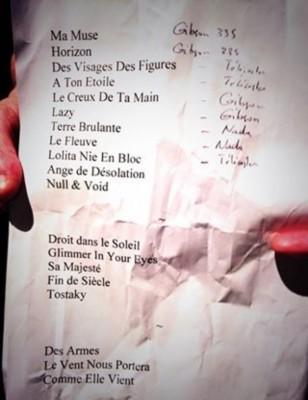 Ma Muse Gibson 335
Horizon Gibson 335
Des Visages Des Figures -
A Ton Etoile -
Le Creux De Ta Main - Gibson
Lazy - Gibson
Terre Brulante - Nada
Le Fleuve - Nada
Lolita Nie En Bloc -
Ange de Désolation
Null & Void
~
Droit dans le Soleil
Glimmer In Your Eyes
Sa Majesté
Fin de Siècle
Tostaky
~
Des Armes
Le Vent Nous Portera
Comme Elle Vient